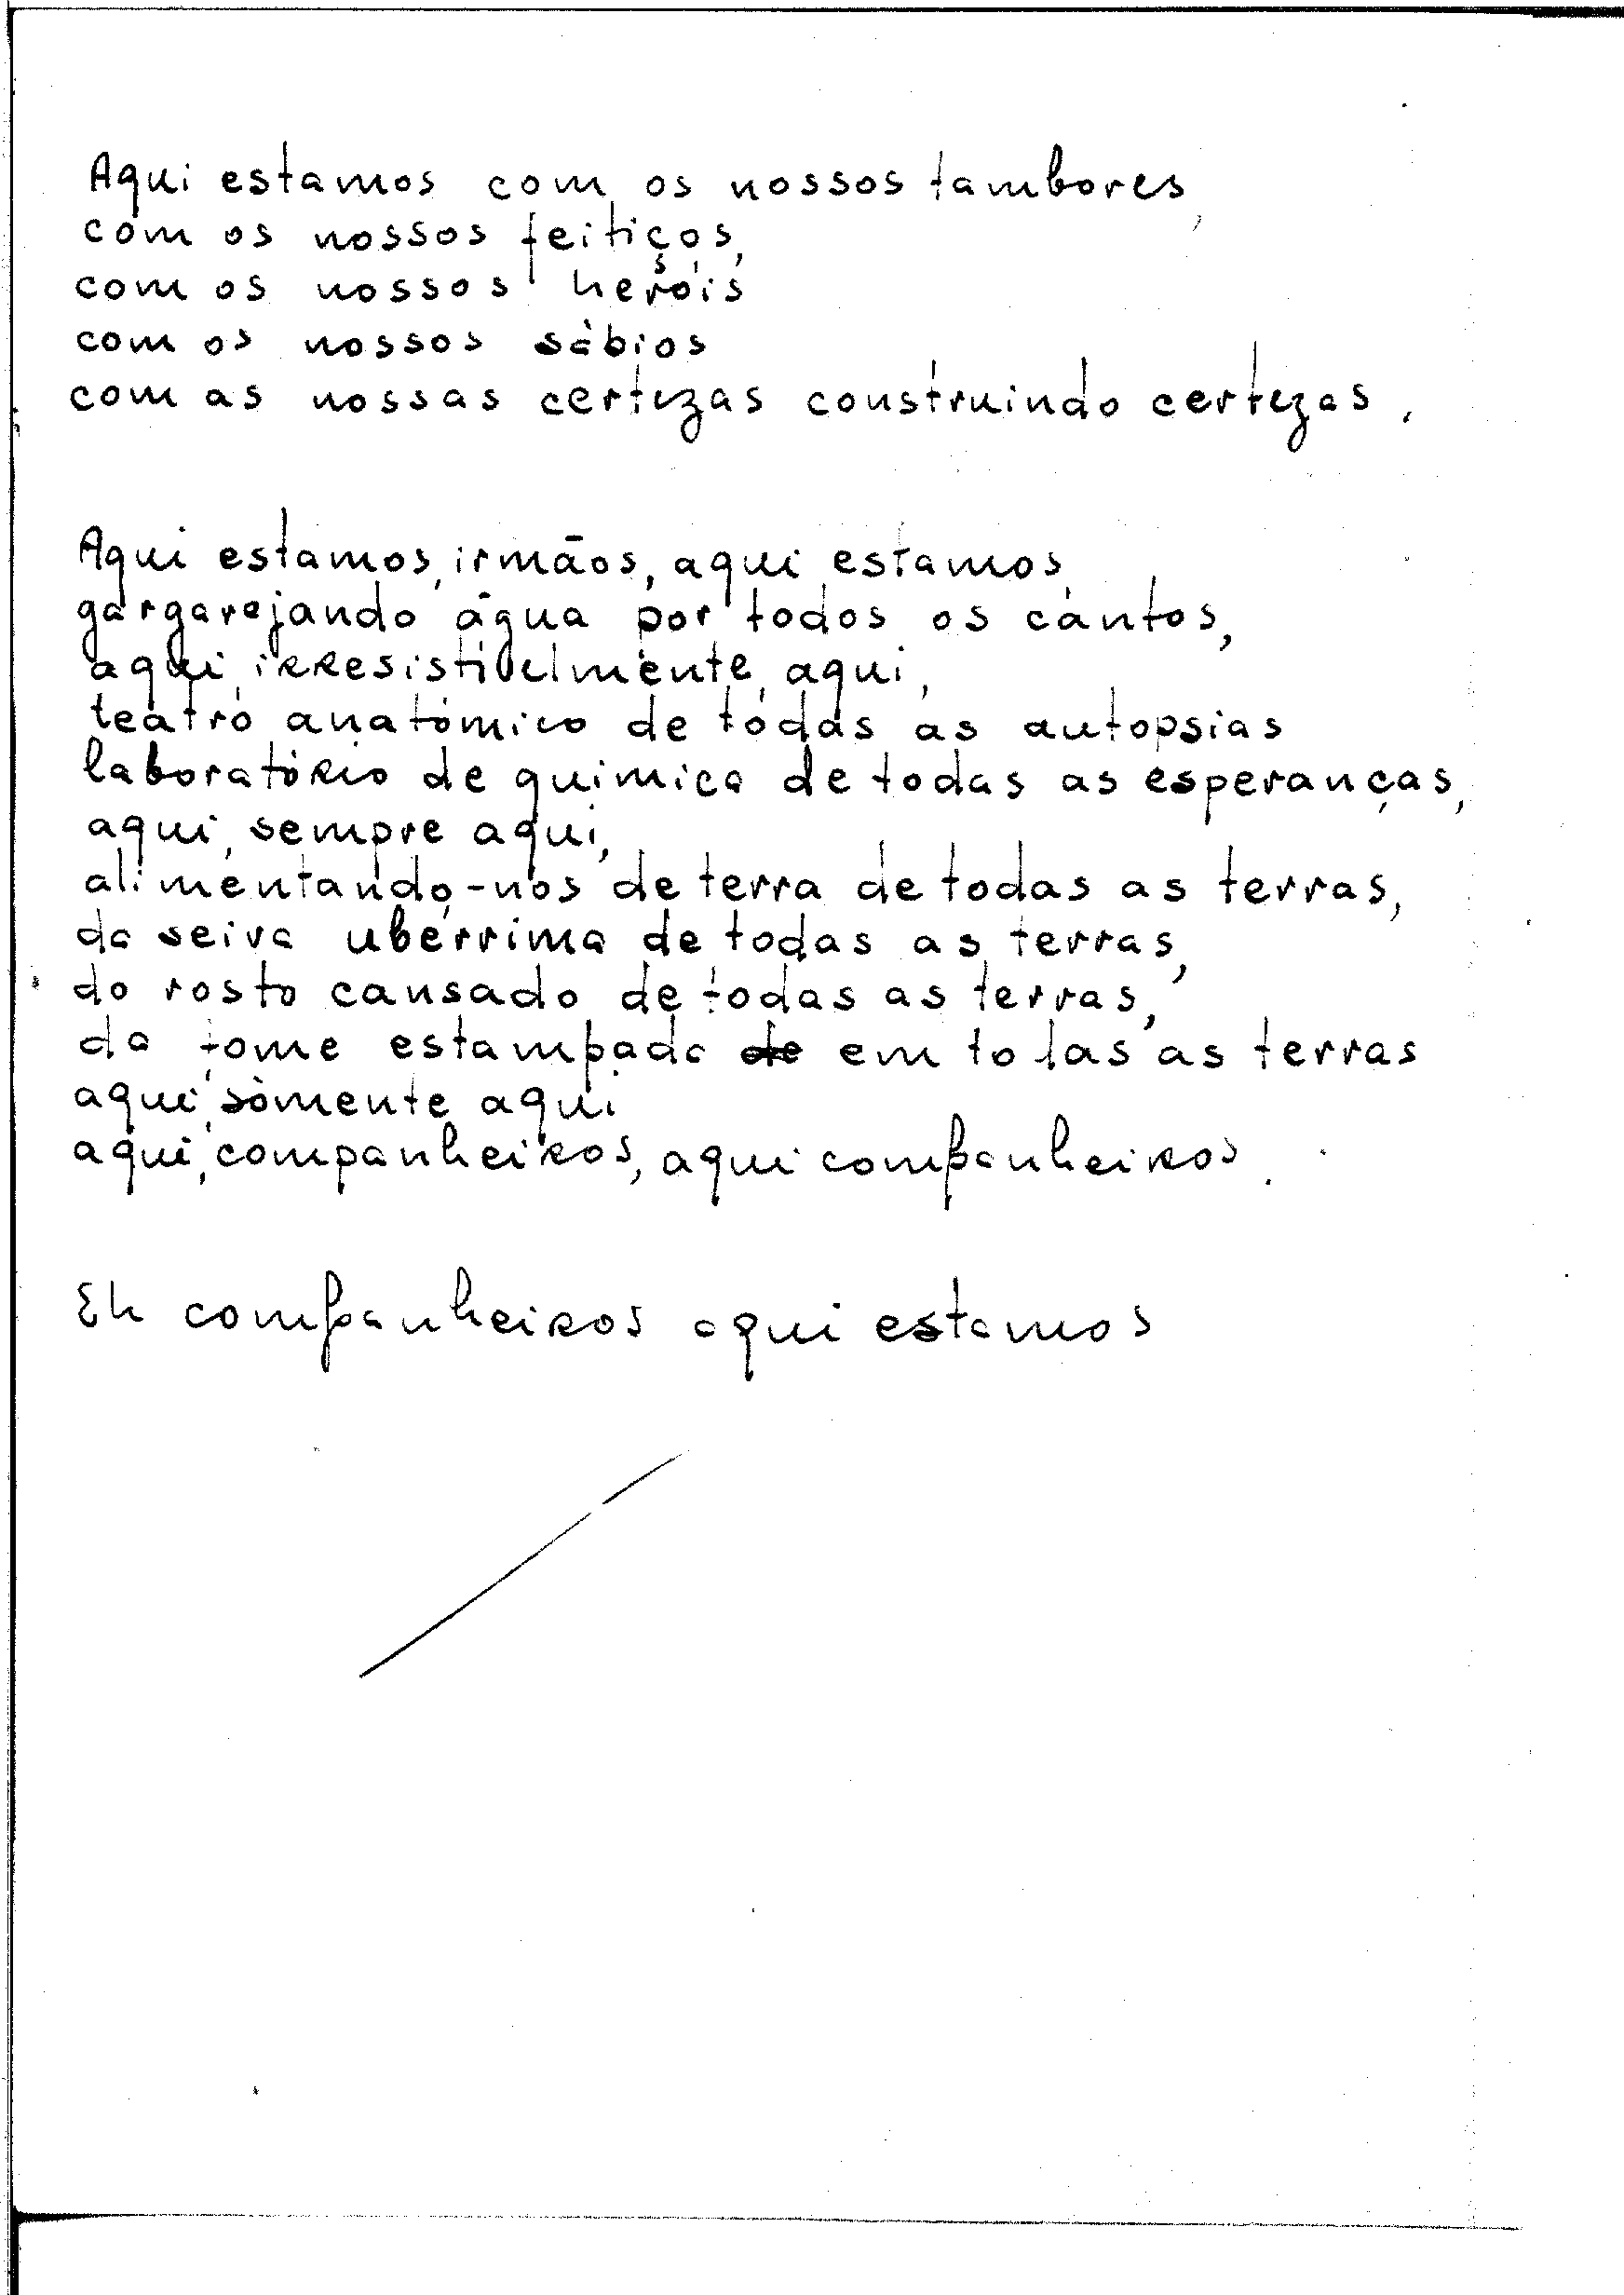 Aqui estamos com os nossos tambores,
com os nossos feitiços,
com os nossos heróis
com os nossos sábios
com as nossas certezas construindo certezas.
Aqui estamos, irmãos, aqui estamos,
gargarejando água por todos os cantos,
aqui, irresistivelmente, aqui,
teatro anatómico de todas as autopsias
laboratório de quimica de todas as esperanças,
aqui, sempre aqui,
alimentando-nos de terra de todas as terras,
da seiva ubérrima de todas as terras,
do rosto cansado de todas as terras,
da fome estampada de em todas as terras
aqui, sòmente aqui
aqui, companheiros, aqui companheiros.
Eh companheiros aqui estamos